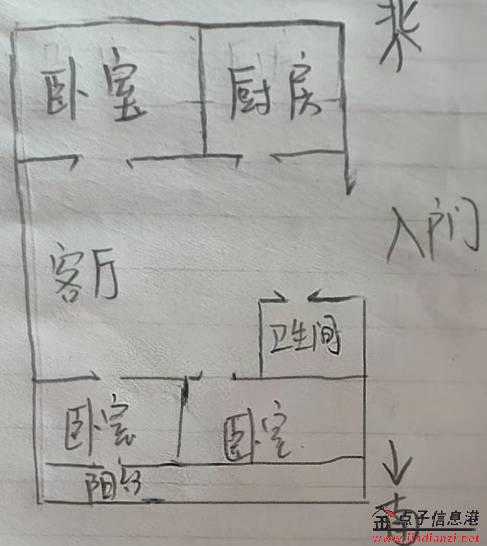 北
卧室
厨房
入户门
客厅
卫生间
卧室
卧室
阳台
南
点子信息港
www.ijndianzi.net